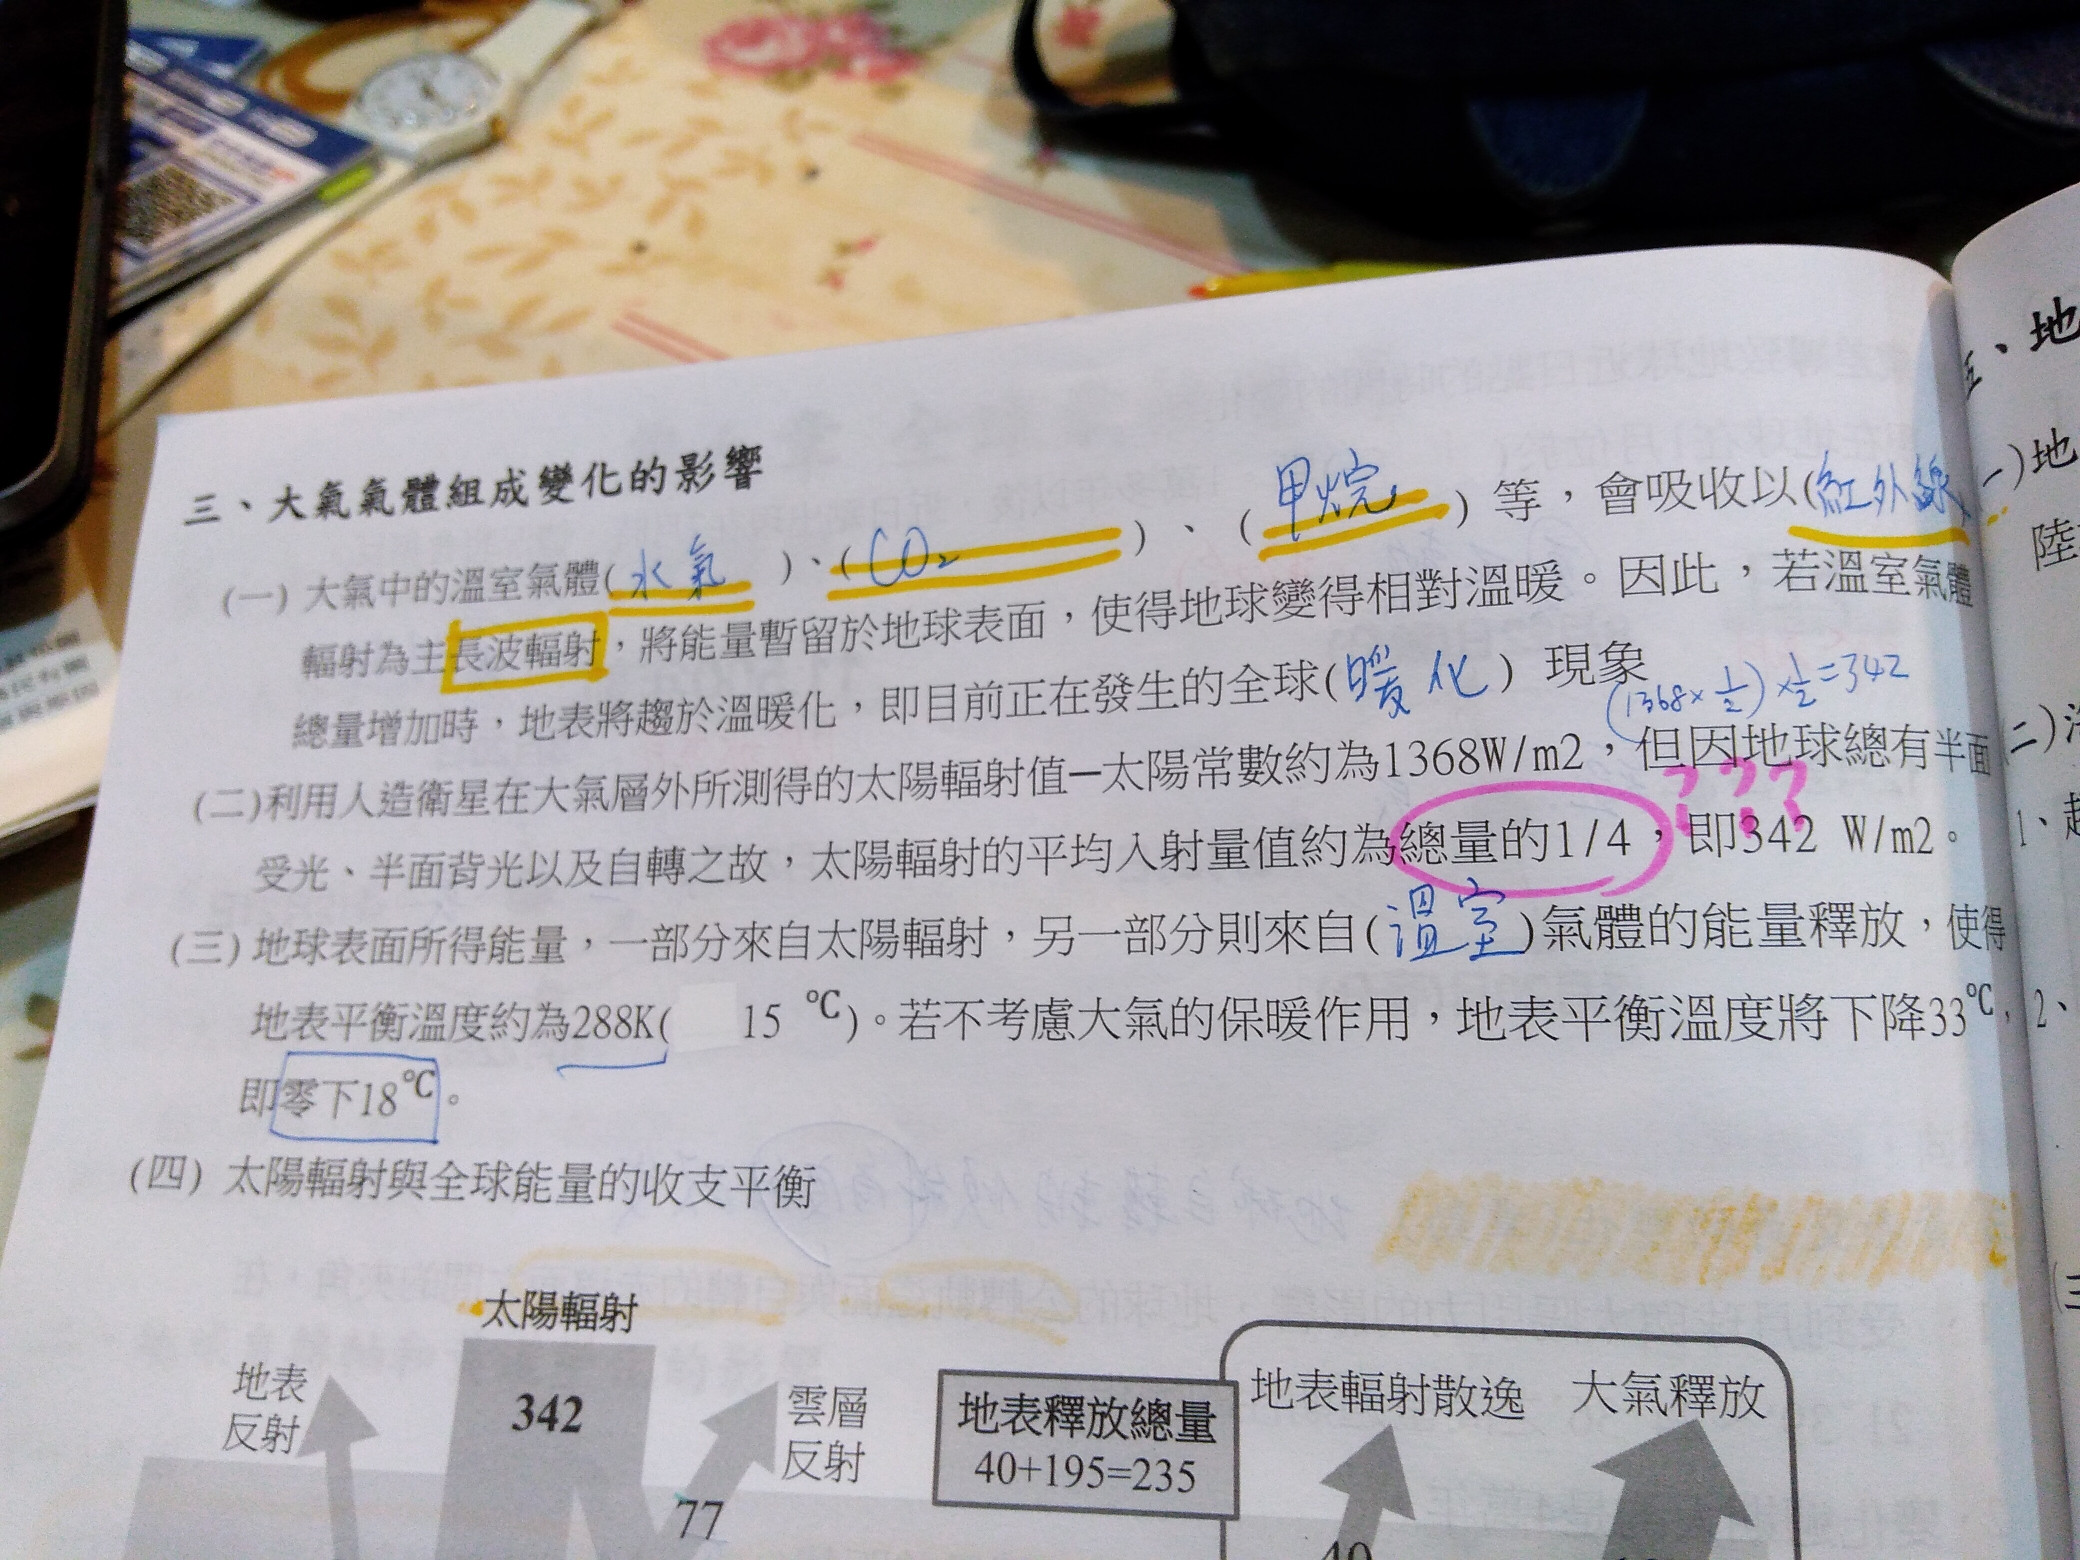 三、大氣氣體組成變化的影響
(一) 大氣中的溫室氣體(水氣)、(CO₂)、(甲烷)等，會吸收以(紅外線)
輻射為主長波輻射，將能量暫留於地球表面，使得地球變得相對溫暖。因此，若溫室氣體
總量增加時，地表將趨於溫暖化，即目前正在發生的全球(暖化)現象
(1368×1/2)×1/2=342
(二)利用人造衛星在大氣層外所測得的太陽輻射值—太陽常數約為1368W/m2，但因地球總有半面
???
受光、半面背光以及自轉之故，太陽輻射的平均入射量值約為總量的1/4，即342 W/m2。
(三) 地球表面所得能量，一部分來自太陽輻射，另一部分則來自(溫室)氣體的能量釋放，使得
地表平衡溫度約為288K( 15 ℃)。若不考慮大氣的保暖作用，地表平衡溫度將下降33℃，
即零下18℃。
(四) 太陽輻射與全球能量的收支平衡
太陽輻射
地表
反射
342
雲層
反射
77
地表釋放總量
40+195=235
地表輻射散逸
大氣釋放
40
五、地
(一)地
陸
(二)
1、
2、